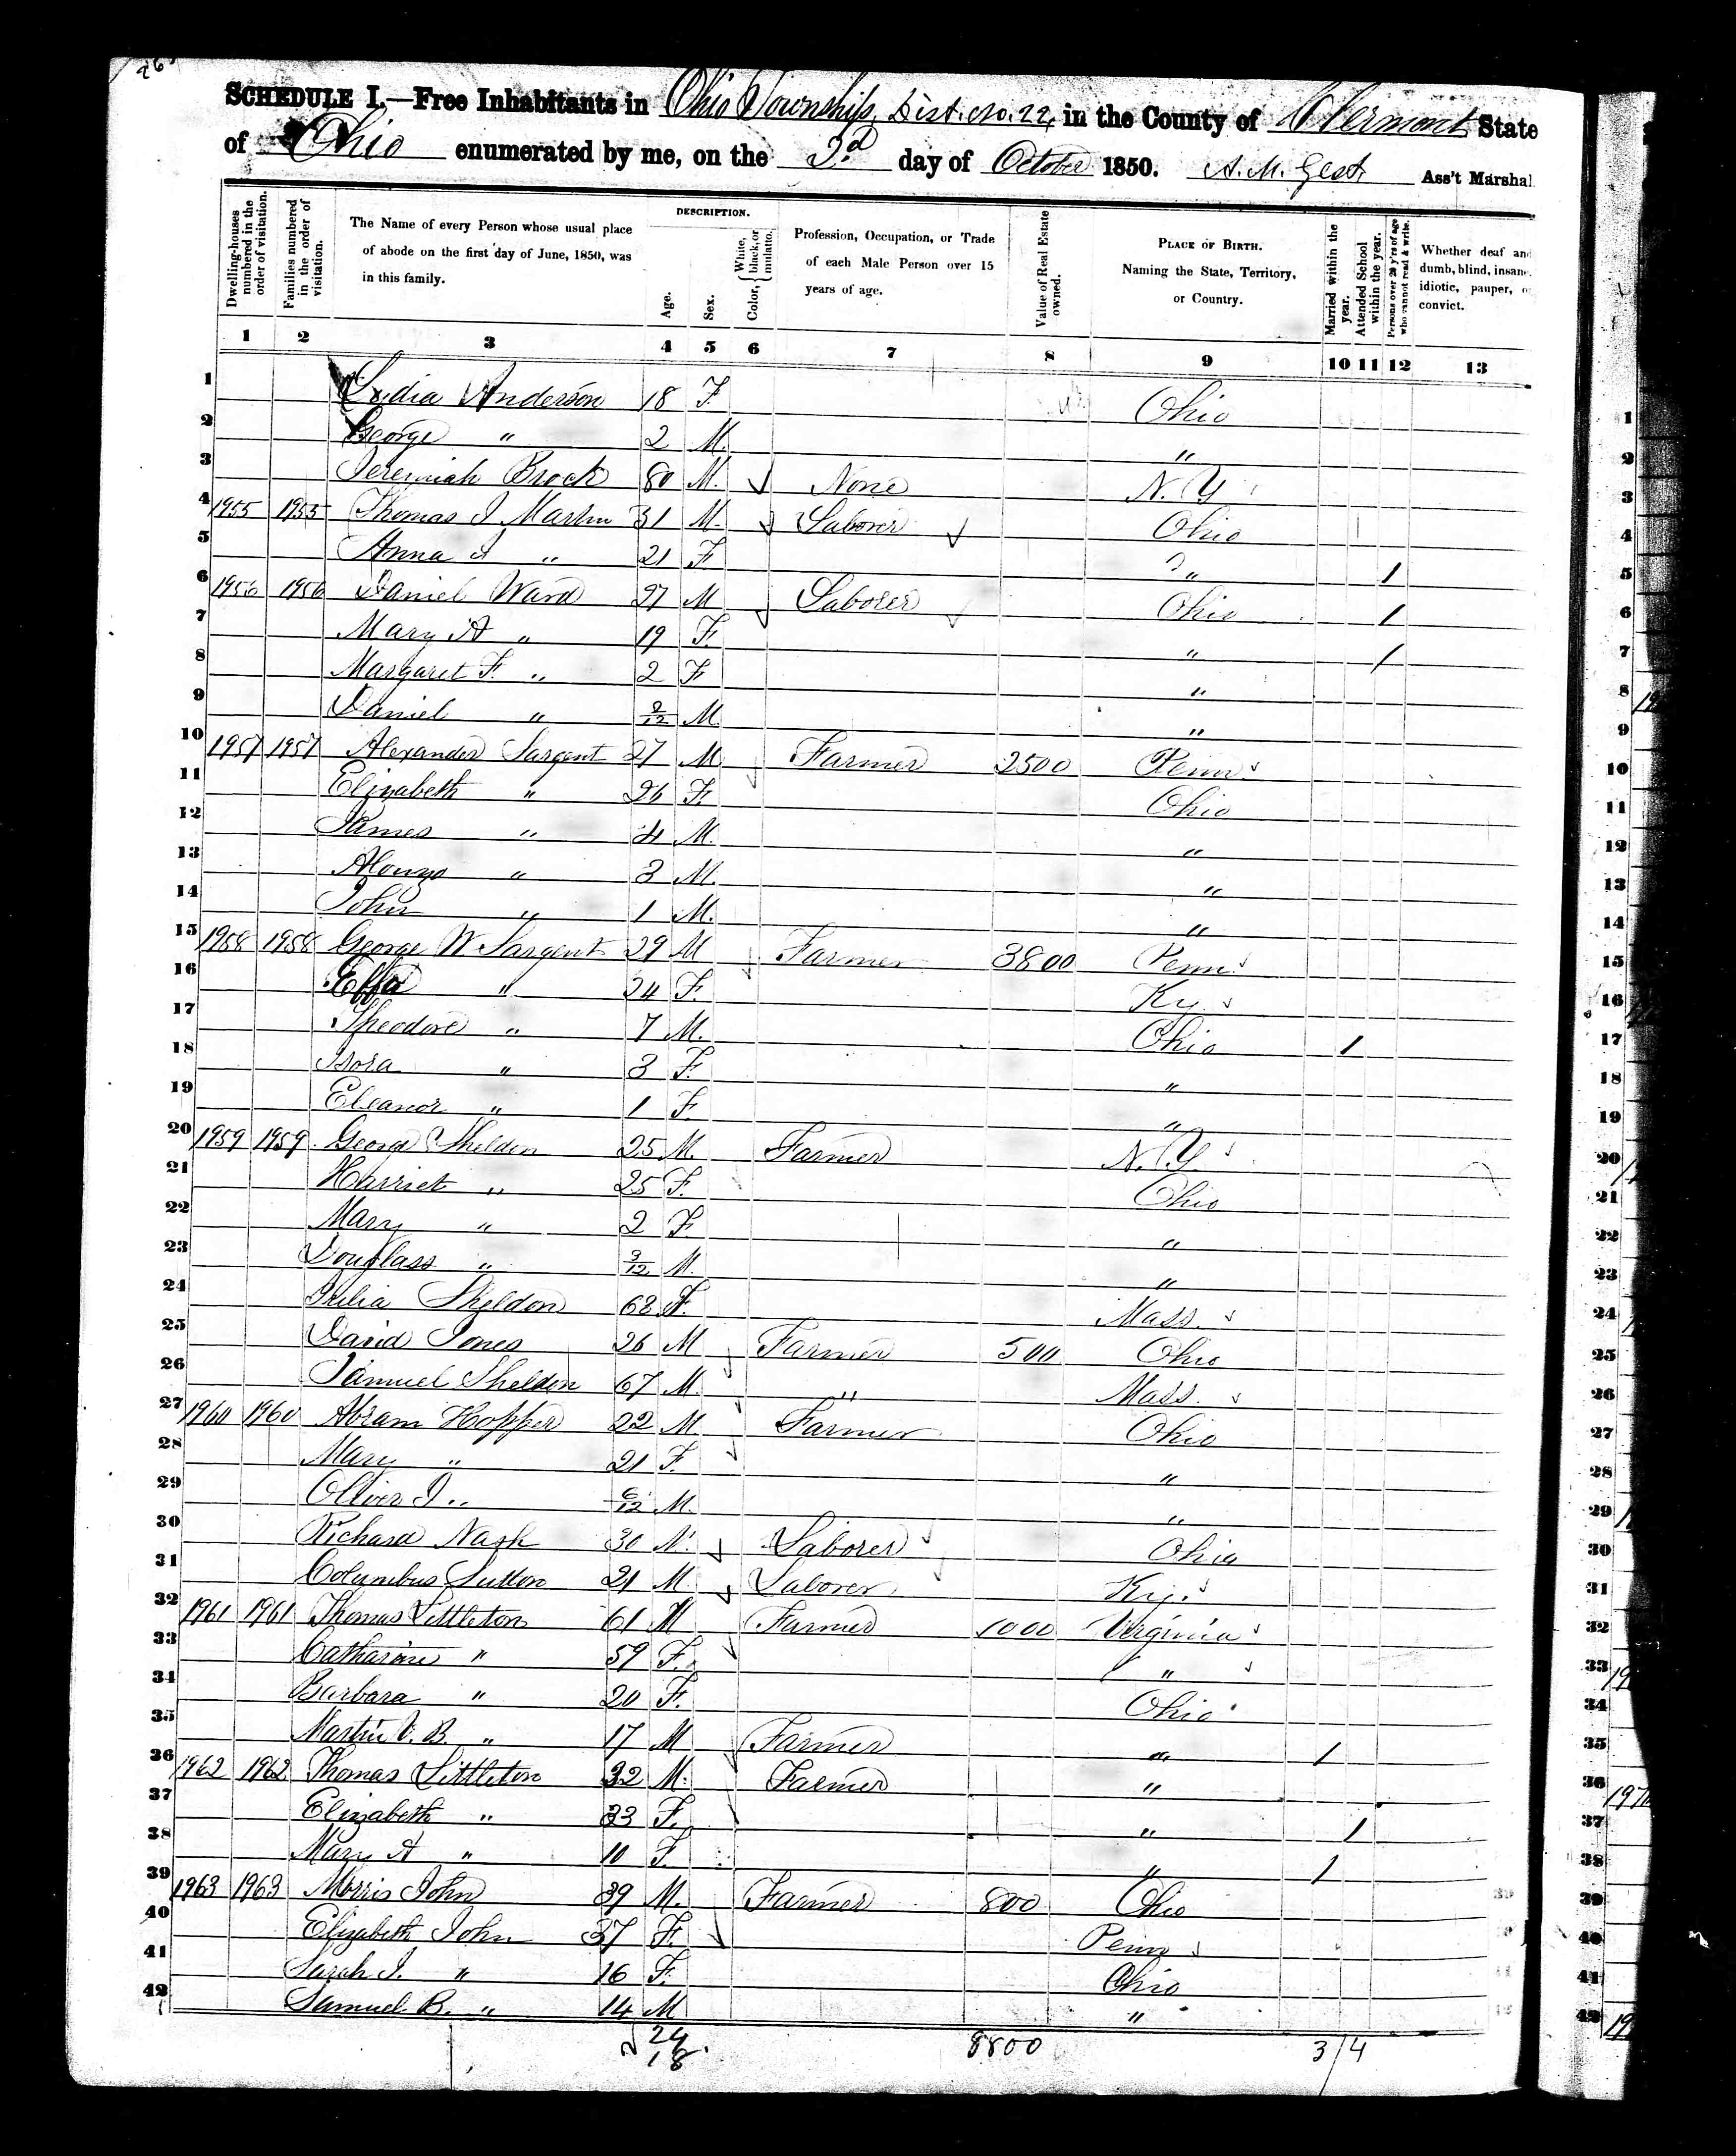 SCHEDULE I.—Free Inhabitants in Ohio Township, Dist. No. 22, in the County of Clermont State
of Ohio enumerated by me, on the 3d day of October 1850. A. M. Gest Ass't Marshal
Dwelling-houses numbered in the order of visitation.
Families numbered in the order of visitation.
The Name of every Person whose usual place of abode on the first day of June, 1850, was in this family.
DESCRIPTION.
Age.
Sex.
Color, { White, black, or mulatto.
Profession, Occupation, or Trade of each Male Person over 15 years of age.
Value of Real Estate owned.
PLACE OF BIRTH. Naming the State, Territory, or Country.
Married within the year.
Attended School within the year.
Persons over 20 y'rs of age who cannot read & write.
Whether deaf and dumb, blind, insane, idiotic, pauper, or convict.
1 2 3 4 5 6 7 8 9 10 11 12 13
1 Lydia Anderson 18 F. Ohio 1
2 George " 2 M. " 2
3 Jeremiah Brock 80 M. None N. Y 3
4 1955 1955 Thomas J Martin 31 M. Laborer Ohio 4
5 Anna A " 21 F " 1 5
6 1956 1956 Daniel Ward 27 M Laborer Ohio 1 6
7 Mary A " 19 F. " 1 7
8 Margaret F. " 2 F " 8
9 Daniel " 2/12 M. " 9
10 1957 1957 Alexander Sargent 27 M Farmer 2500 Penn 10
11 Elizabeth " 26 F. Ohio 11
12 James " 4 M. " 12
13 Alonzo " 3 M. " 13
14 John " 1 M. " 14
15 1958 1958 George W Sargent 29 M Farmer 3800 Penn 15
16 " 24 F. Ky 16
17 Theodore " 7 M. Ohio 1 17
18 Isora " 3 F. " 18
19 Eleanor " 1 F. " 19
20 1959 1959 George Sheldon 25 M. Farmer N. Y. 20
21 Harriet " 25 F. Ohio 21
22 Mary " 2 F. " 22
23 Douglass " 3/12 M. " 23
24 Julia Sheldon 63 F. Mass. 24
25 David Jones 26 M Farmer 500 Ohio 25
26 Samuel Sheldon 67 M. " Mass. 26
27 1960 1960 Abram Hopper 22 M Farmer Ohio 27
28 Mary " 21 F. " 28
29 Oliver J " 6/12 M. " 29
30 Richard Nash 30 M. Laborer Ohio 30
31 Columbus Sutton 21 M Laborer Ky. 31
32 1961 1961 Thomas Littleton 61 M Farmer 1000 Virginia 32
33 Catharine " 59 F. " 33
34 Barbara " 20 F. Ohio 34
35 Martin V. B. " 17 M Farmer " 1 35
36 1962 1962 Thomas Littleton 32 M. Farmer " 36
37 Elizabeth " 33 F. " 1 37
38 Mary A " 10 F. " 1 38
39 1963 1963 Morris John 39 M. Farmer 800 Ohio 39
40 Elizabeth John 37 F. Penn 40
41 Sarah J. " 16 F. Ohio 41
42 Samuel B. " 14 M " 42
24
18
8800
3/4